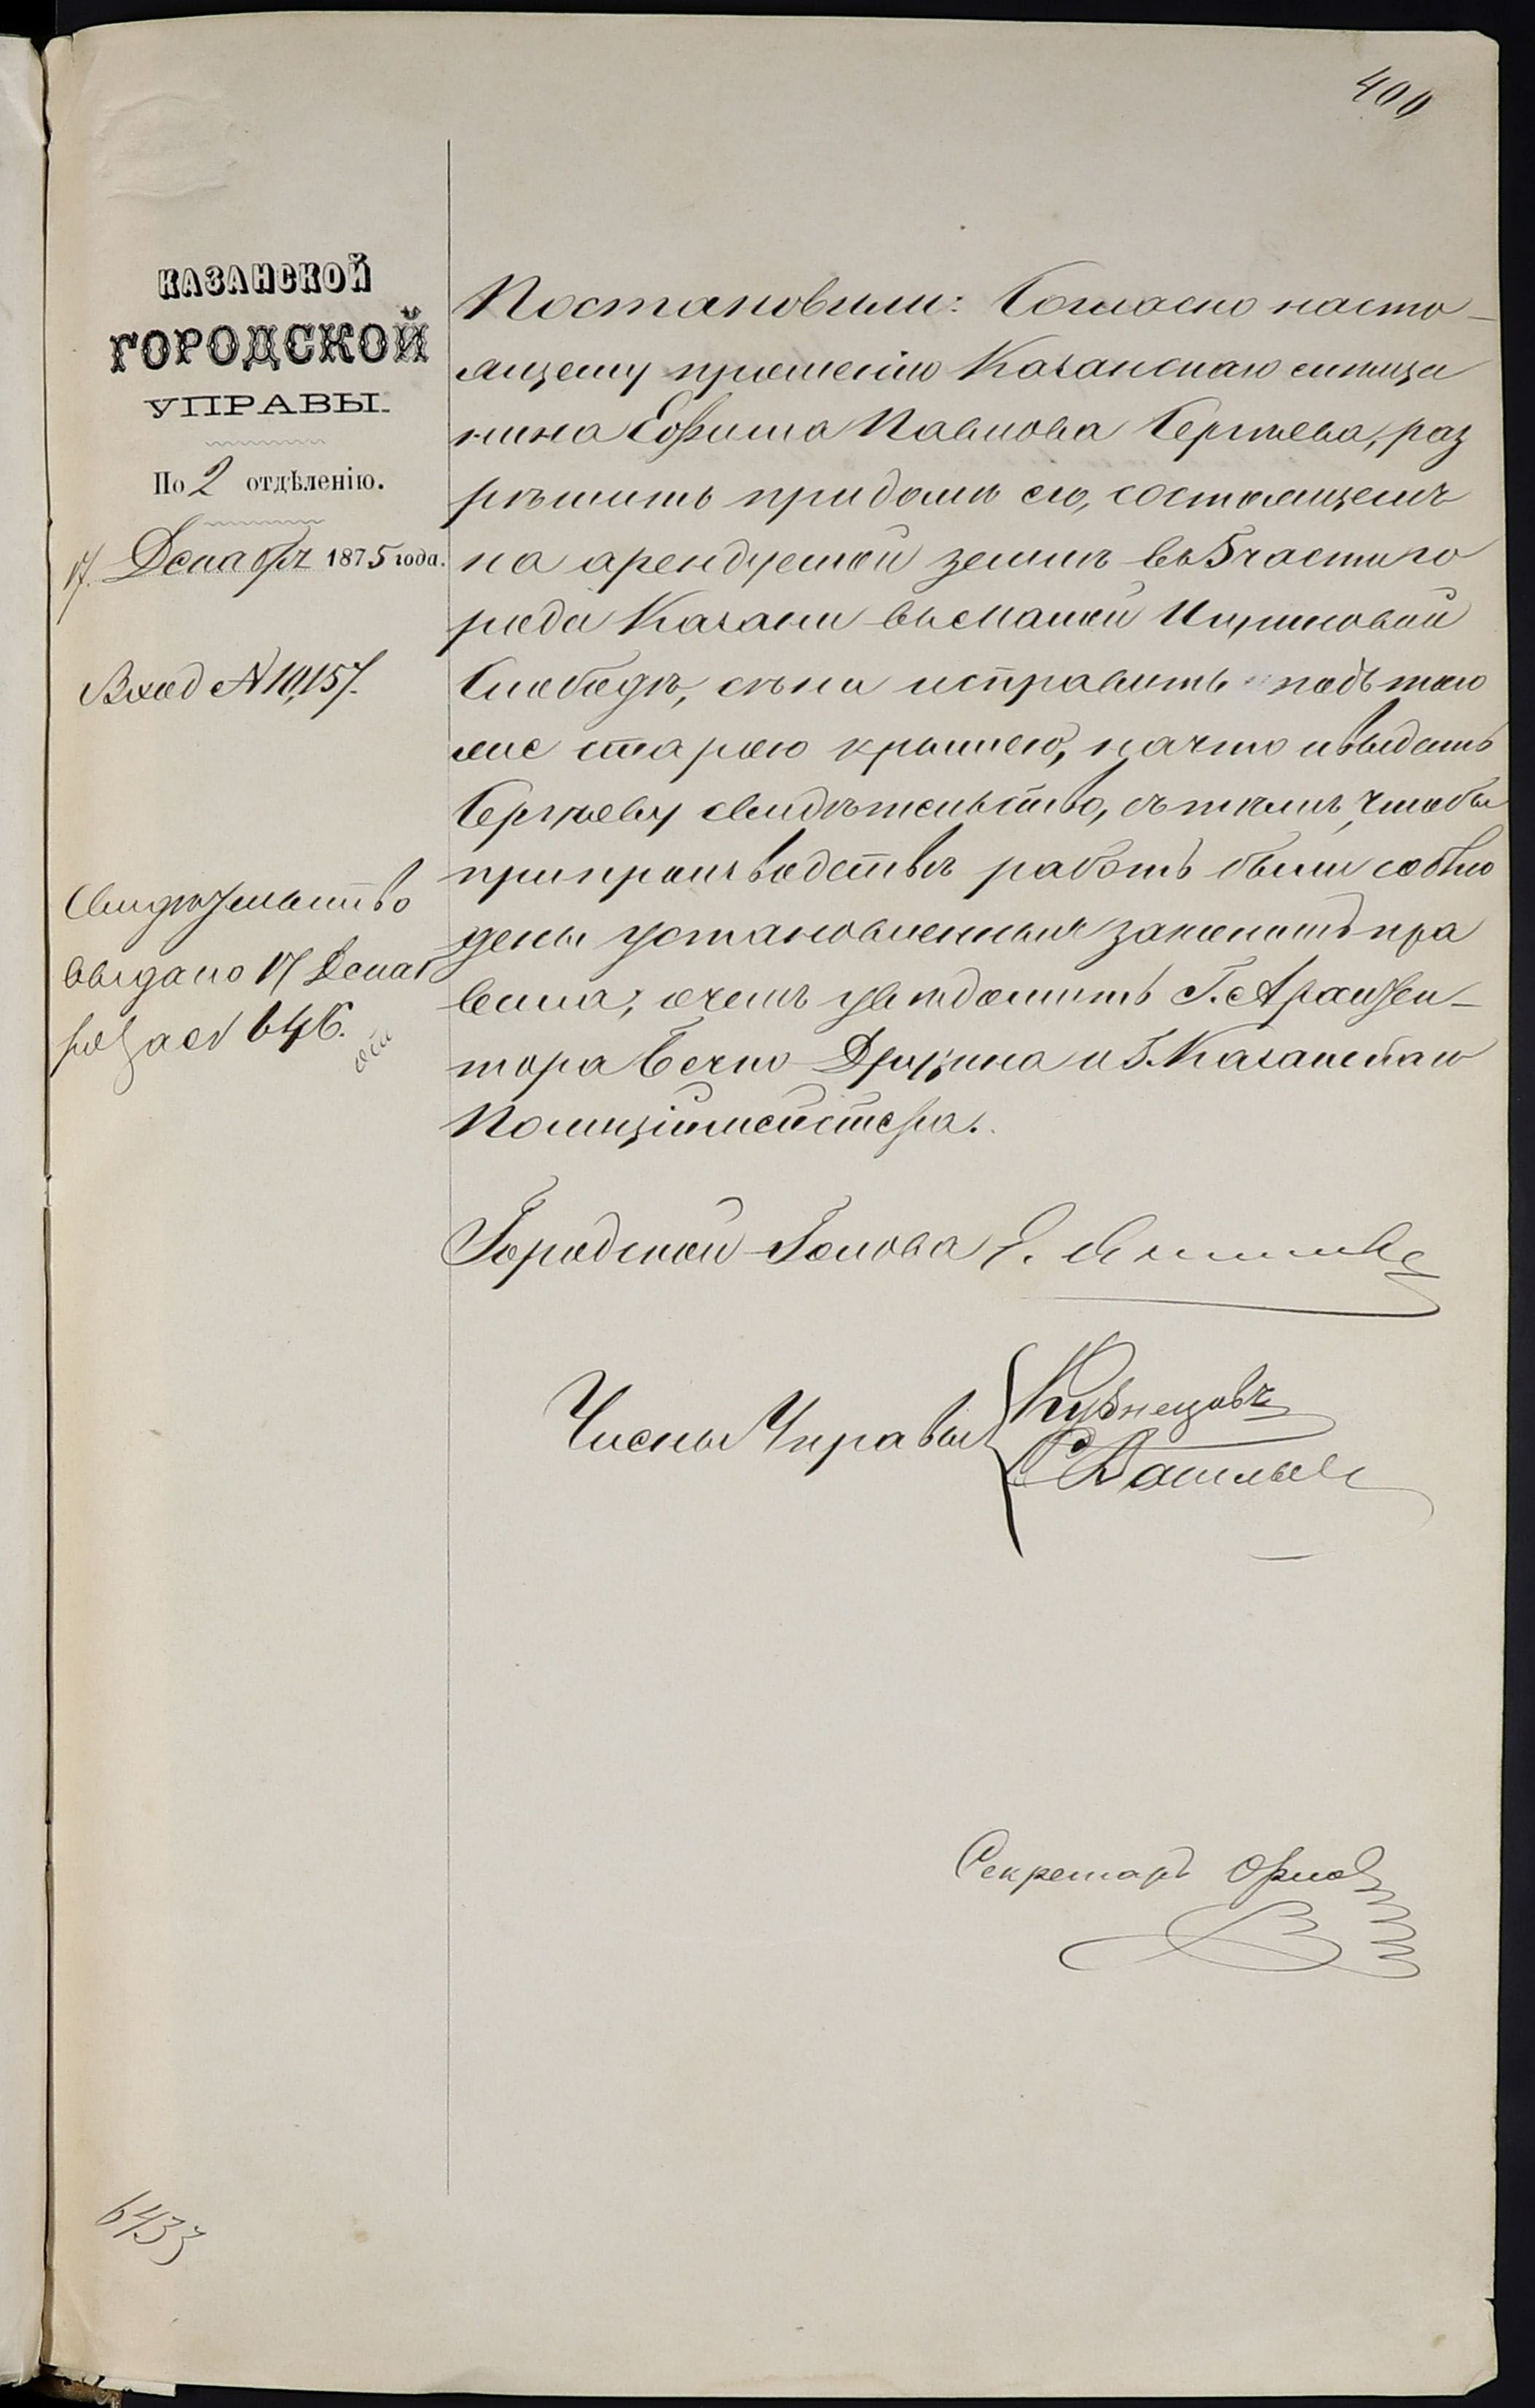 400
КАЗАНСКОЙ
ГОРОДСКОЙ
УПРАВЫ.
По 2 отдѣленію.
17. Декабря 1875 года.
Вход № 10,157.
Свидѣтельство
выдано 17 Декаб
ря за № 646.
Постановили: Согласно насто-
ящему прошенію Казанскаго мѣща
нина Ефима Павлова Сергѣева, раз
рѣшить при домѣ его, состоящемъ
на арендуемой землѣ въ 5 части го
рода Казани въ Малой Игумновой
Слободѣ, сѣни исправить подъ тою
же старою крышею, на что и выдать
Сергѣеву свидѣтельство, съ тѣмъ, чтобы
при производствѣ работъ были соблю
дены установленныя закономъ пра
вила; о чемъ увѣдомить Г. Архитек-
тора Бечко-Друзина и Г. Казанскаго
Полиціймейстера.
Городской Голова
Члены Управы
Кузнецовъ
Секретарь Орлов
6433